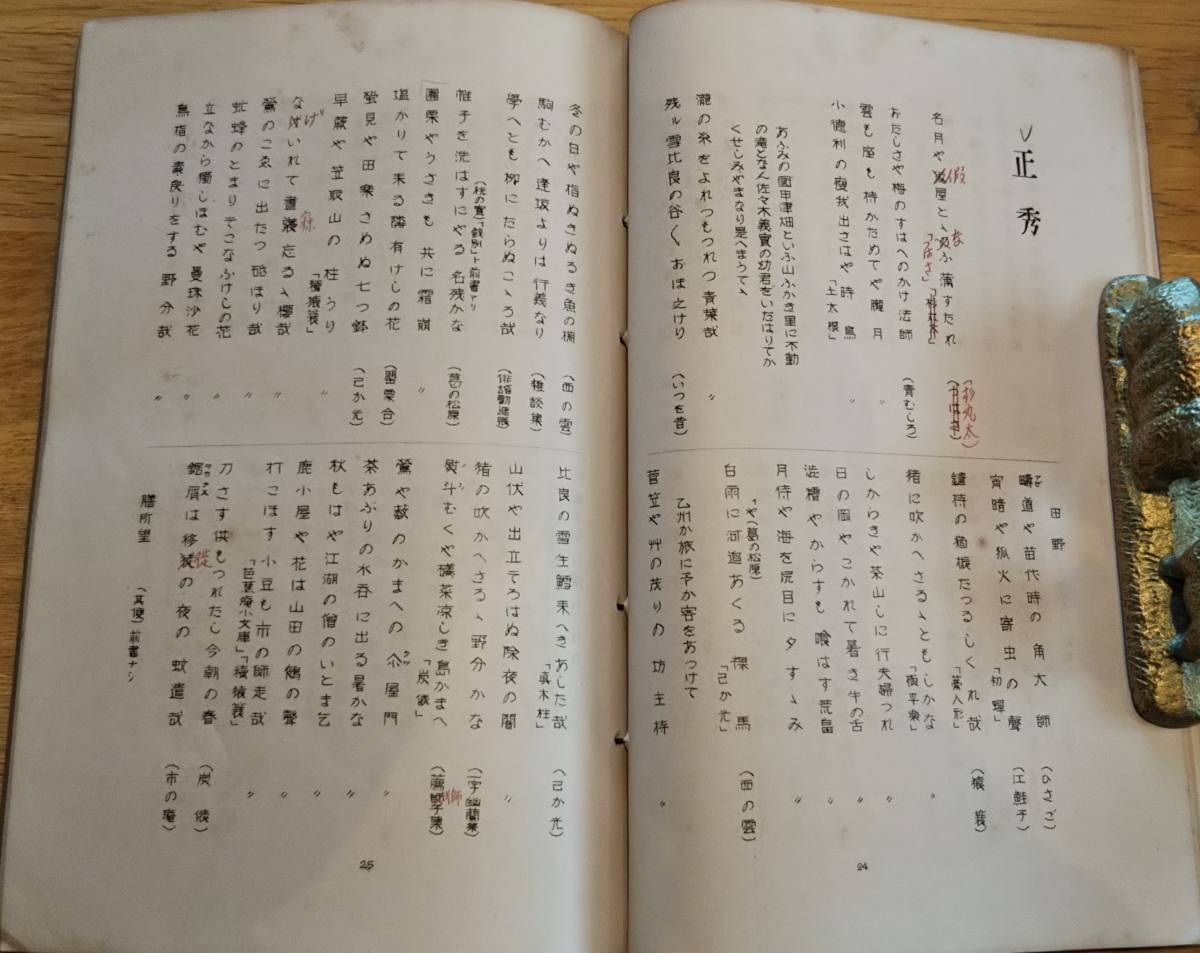 正秀
名月や假屋とゝなふ蒲すたれ (杉丸太)
おたしさや梅のすはへのかけ法師 (青むしろ)
雲も座も持かためてや朧月 〃
小徳利の痩我出さはや時鳥 「土太根」 〃
あふみの國甲津畑といふ山ふかき里に不動
の滝となん佐々木義實の幼君をいたはりてか
くせしみやまなり是へまうてゝ
瀧の糸をよれつもつれつ青葉哉 〃
残ル雪比良の谷〱おほ之けり (いつを昔)
田野
疇道や苗代時の角大師 (ひさご)
宵暗や狐火に寄虫の聲 「初蟬」 (江鮭子)
鐘持の猶振たつるしくれ哉 「藁人形」 (猿蓑)
猪に吹かへさるゝともしかな 「横平樂」 〃
しからきや茶山しに行夫婦つれ 〃
日の岡やこかれて暑き牛の舌 〃
澁糟やからすも喰はす荒畠 〃
月待や海を尻目に夕すゝみ 〃
「やへ葛の松原」
白雨に河追あくる裸馬 「己か光」 (西の雲)
乙州か旅に予か客をあつけて
菅笠や艸の茂りの坊主持 〃
24
冬の日や指ぬきぬるき魚の棚 (西の雲)
駒むかへ逢坂よりは行義なり (雜談集)
學へとも柳にたらぬこゝろ哉 (俳諧勸進牒)
(桃の實)「餞別」ト前書アリ
帷子を洗はすにやる名残かな (葛の松原)
團栗やうさきも共に霜崩 〃
塩かりて来る隣有けしの花 (團栗合)
螢見や田樂さめぬ七つ鉢 (己か光)
早蕨や笠取山の柱うり 「續猿蓑」 〃
なげいれて晝寐忘るゝ櫻哉 〃
鶯のこゑに出たつ砧ほり哉 〃
虻蜂のとまりそこなふけしの花 〃
立なから獨しほむや曼珠沙花 〃
鳥指の素戻りをする野分哉 〃
比良の雪生鱈来へきあした哉 「眞木柱」 (己か光)
山伏や出立てろはぬ除夜の闇 〃
猪の吹かへさるゝ野分かな (一字幽蘭集)
熨斗むくや礒菜凉しき島かまへ 「炭俵」 (薦獅子集)
鶯や薮のかまへの屋門 〃
茶あふりの水呑に出る暑かな 〃
秋もはや江湖の僧のいとま乞 〃
鹿小屋や花は山田の鶉の聲 〃
打こほす小豆も市の師走哉 「芭蕉庵小文庫」「續猿蓑」 〃
刀さす供もつれたし今朝の春 (炭俵)
鋸屑は移徙の夜の蚊遣哉 (市の庵)
膳所望
(其便)前書ナシ
25